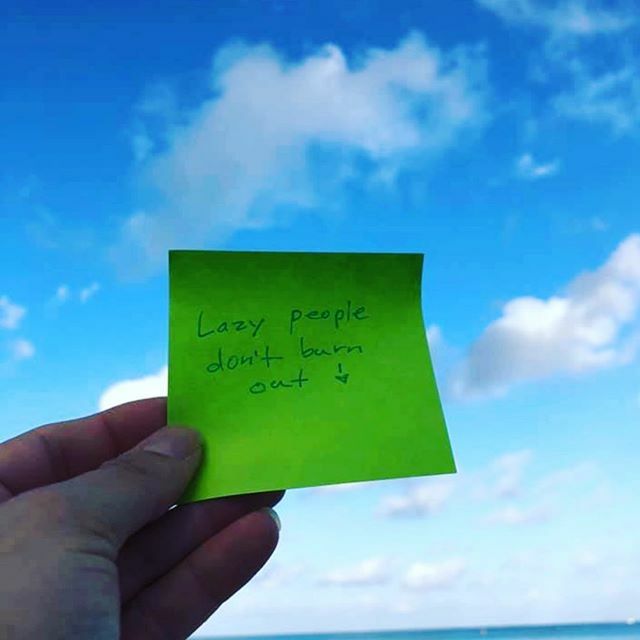 Lazy people
don't burn
out !